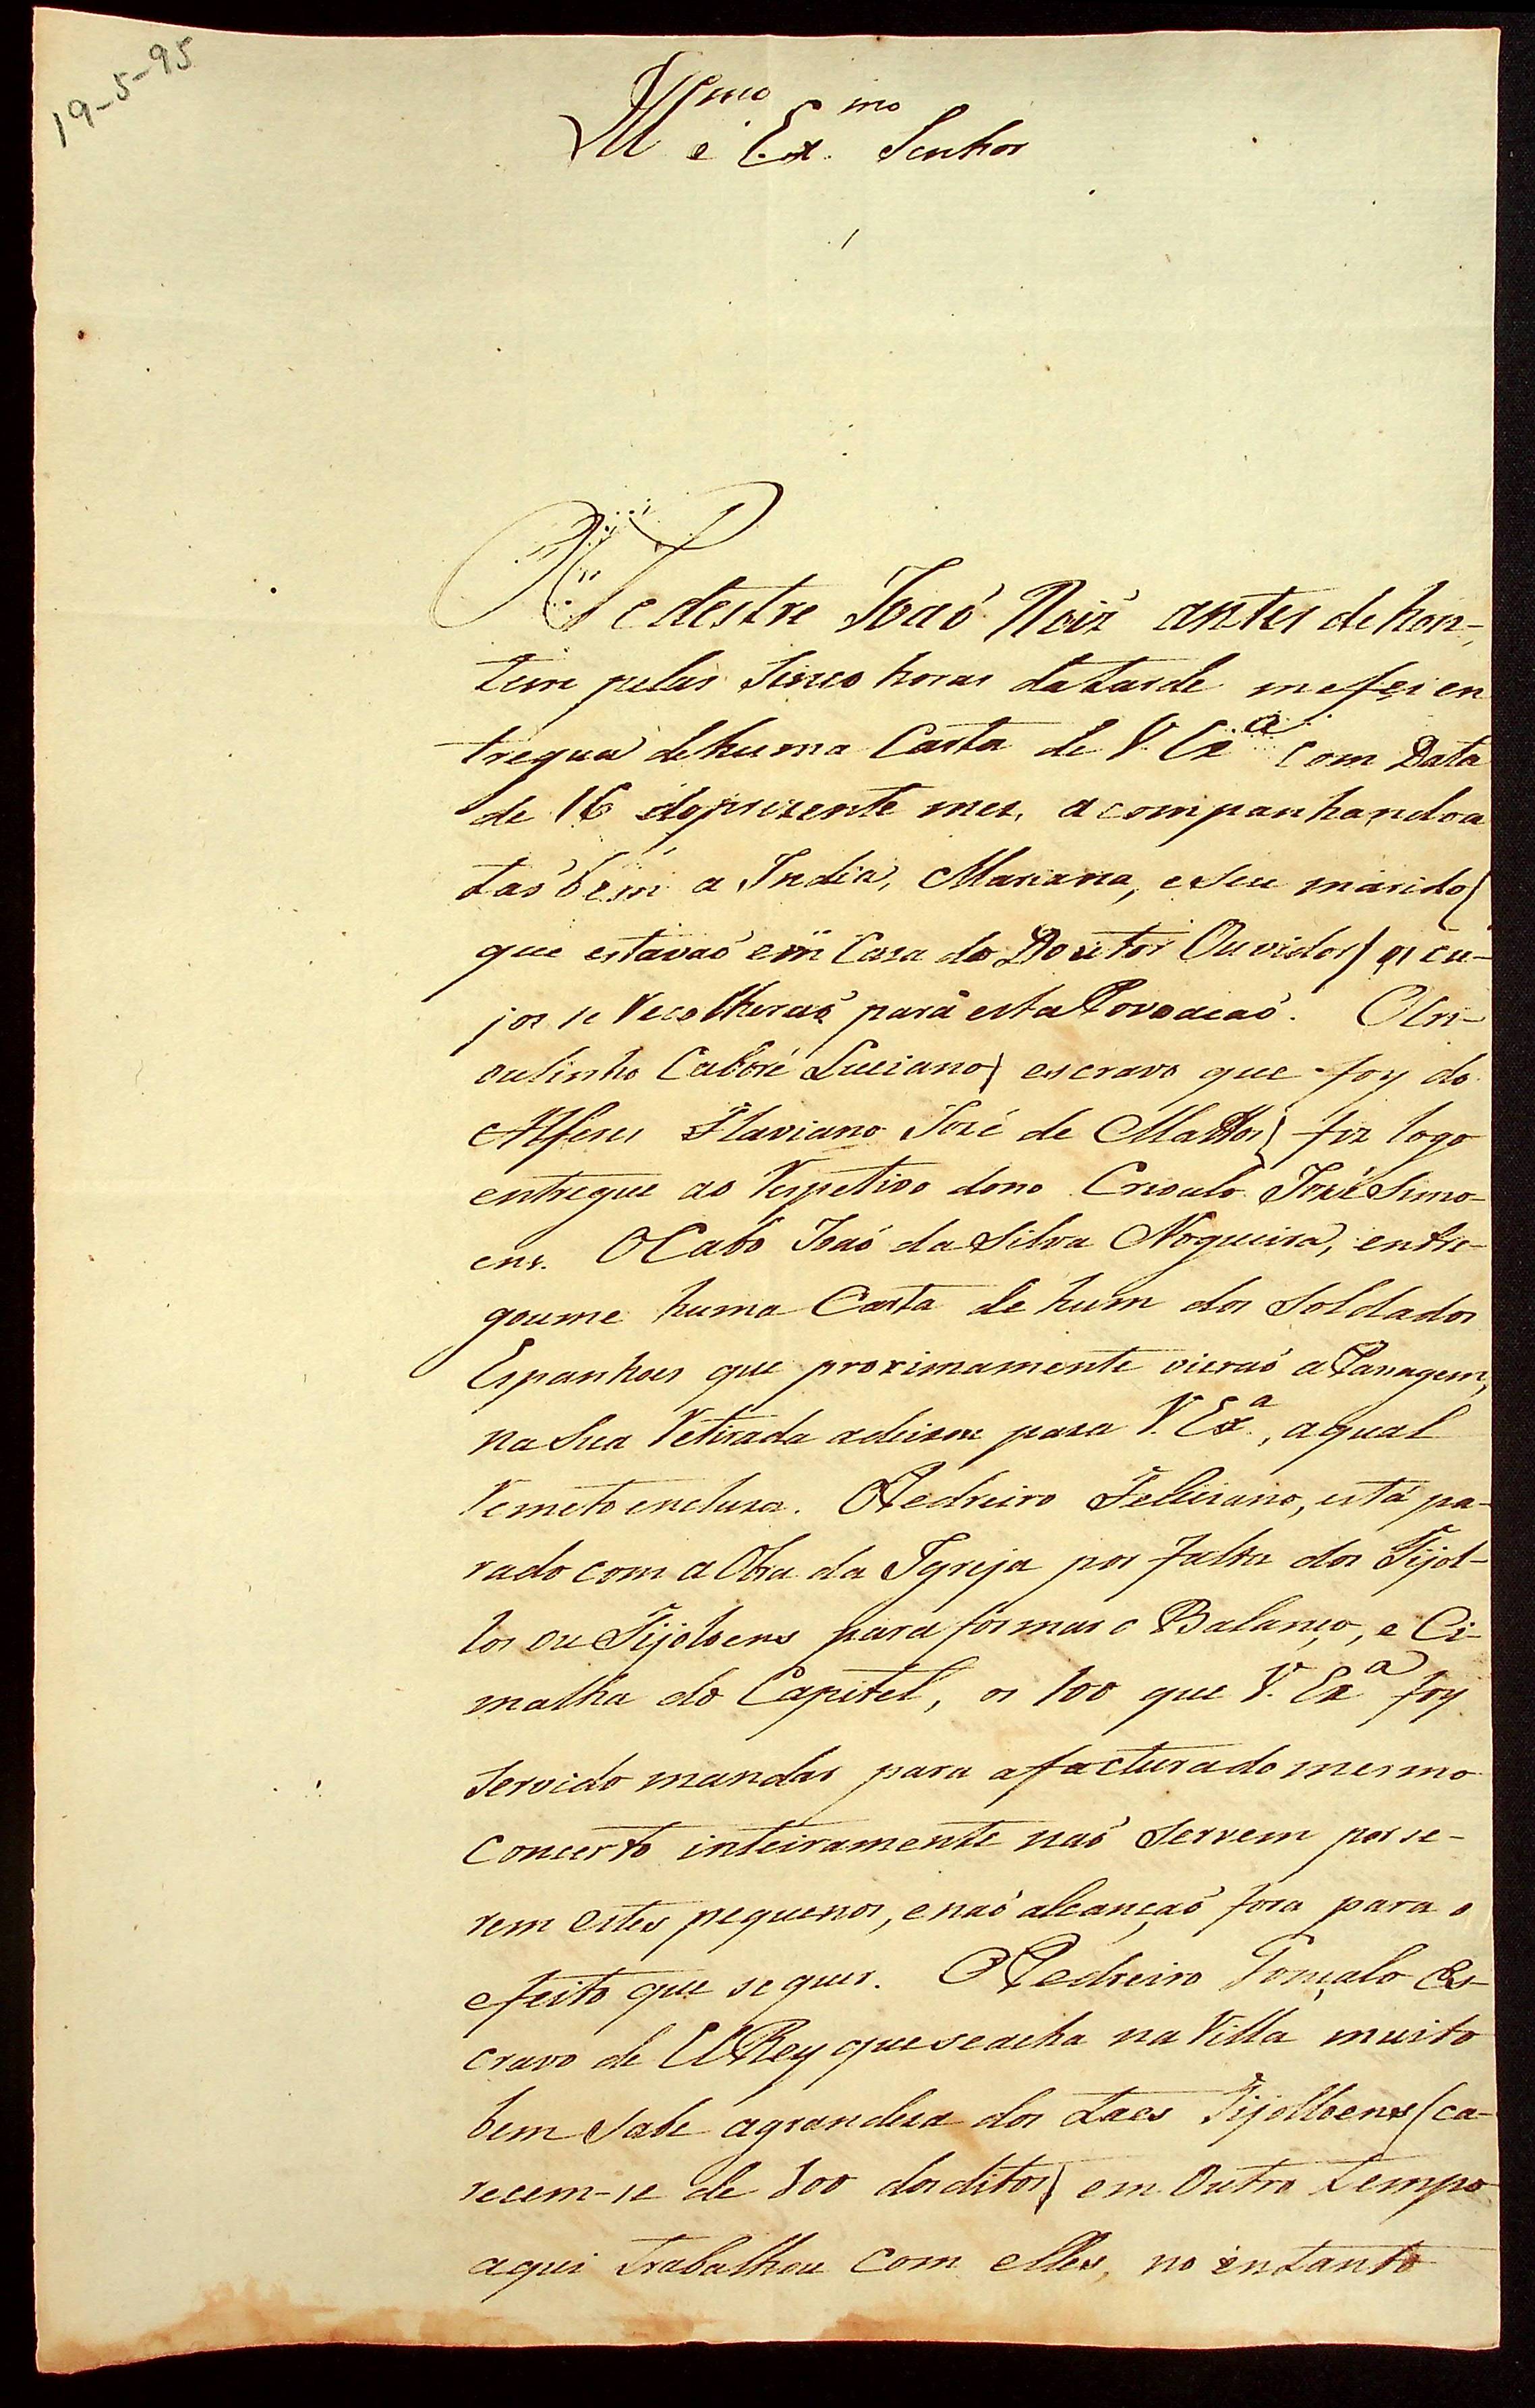 19-5-95
Ill.mo e Ex.mo Senhor
O Pedestre Joaõ Roiz antes de hon-
tem pelas sinco horas datarde mefez en
tregua dehuma Carta de V. Exª com Data
de 16 dopresente mez, acompanhandoa
taõbem a India, Mariana, eseu marido(
que estavaõ em Caza do Doutor Ouvidor) os cu-
jos se recolheraõ para esta Povoacaõ. O Cri-
oulinho Caboré Luciano) escravo que foy do
Alferes Flaviano José de Mattos) fiz logo
entregue ao respetivo dono Crioulo José Simo-
ens. O Cabo Joaõ da Silva Nogueira, entre-
goume huma Carta de hum dos Soldados
Espanhoes que proximamente vieraõ a Paragem,
na Sua retirada adeixou para V. Exª, aqual
remeto encluza. O Pedreiro Feliciano, está pa-
rado com a Obra da Igreja por falta dos Tijol-
los ou Tijoloens para formar o Balanço, e Ci-
malha do Capitel, os 100 que V. Exª foy
servido mandar para afacturado mesmo
concerto inteiramente naõ servem por se-
rem estes pequenos, enaõ alcançaõ fora para o
efeito que se quer. O Pedreiro Gonçalo es-
cravo de El Rey que seacha na Villa muito
bem sabe agrandeza dos taes Tijolloens (ca-
recem-se de 300 dosditos) em Outro tempo
aqui trabalhou com elles, no entanto